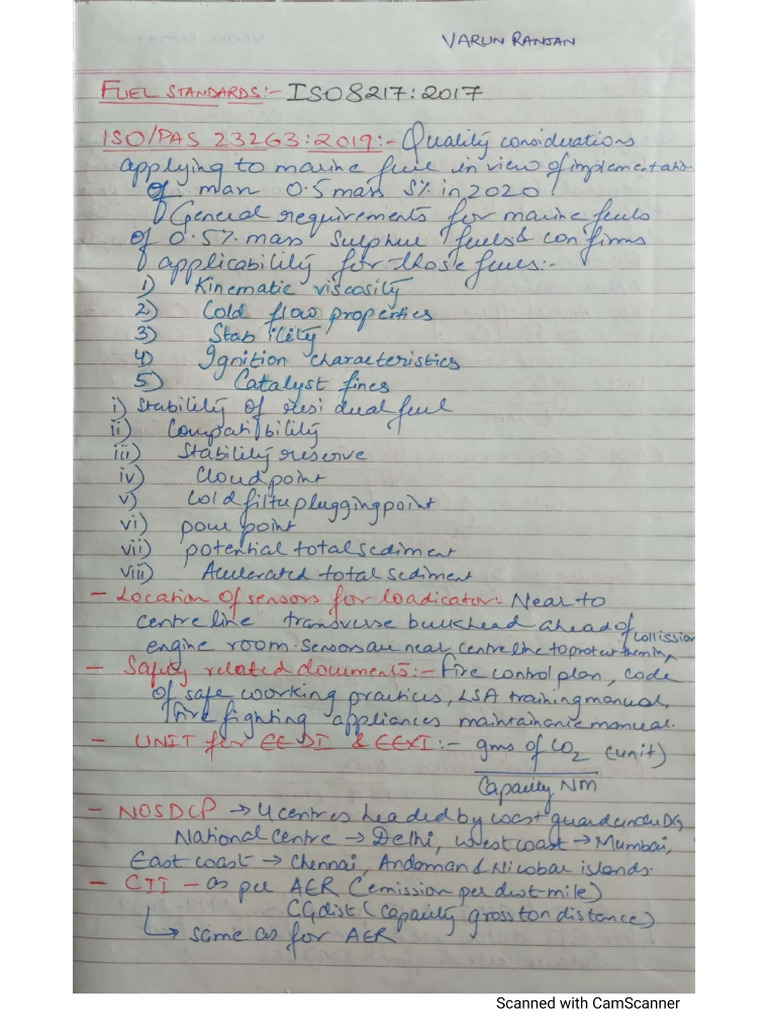 VARUN RANJAN
FUEL STANDARDS:- ISO8217:2017
ISO/PAS 23263:2019:- Quality considerations
applying to marine fuel in view of implementation
of man 0.5 mass S% in 2020
General requirements for marine fuels
of 0.5% mass sulphur fuels & confirms
applicability for those fuels:-
1) Kinematic viscosity
2) Cold flow properties
3) Stability
4) Ignition characteristics
5) Catalyst fines
i) Stability of residual fuel
ii) Compatibility
iii) Stability reserve
iv) Cloud point
v) Cold filter plugging point
vi) pour point
vii) potential total sediment
viii) Acelerated total sediment
- Location of sensors for loadicator:- Near to
centre line transverse bulkhead ahead of collission
engine room. Sensors are near centre line to protect them in
- Safety related documents:- Fire control plan, code
of safe working practices, LSA training manual,
Fire fighting appliances maintainance manual.
- UNIT for EEDI & EEXI:- gms of CO2 (unit)
Capacity NM
- NOSDCP → 4 centres headed by coast guard under DG,
National centre → Delhi, West coast → Mumbai,
East coast → Chennai, Andoman & Nicobar islands.
- CII - as per AER (emission per dwt-mile)
CGdist (capacity gross ton distance)
↳ same as for AER
Scanned with CamScanner